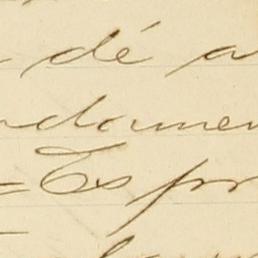 dé a
ndamen
=Es pr